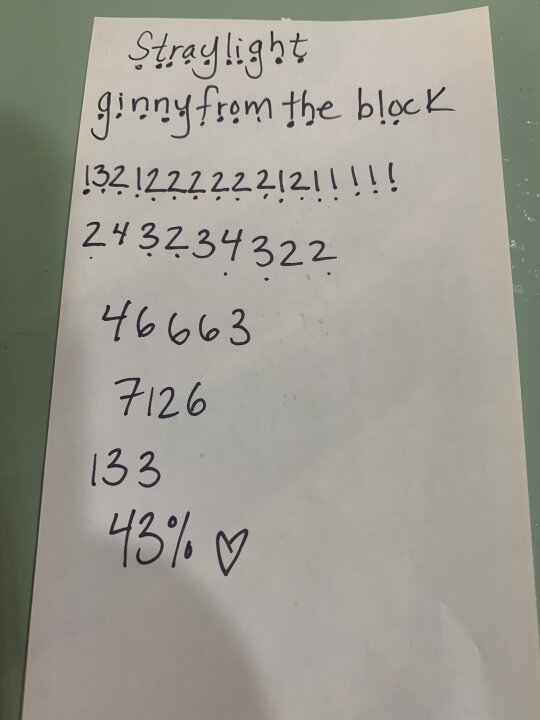 Straylight
ginny from the block
13212222221211111
243234322
46663
7126
133
43% ♡